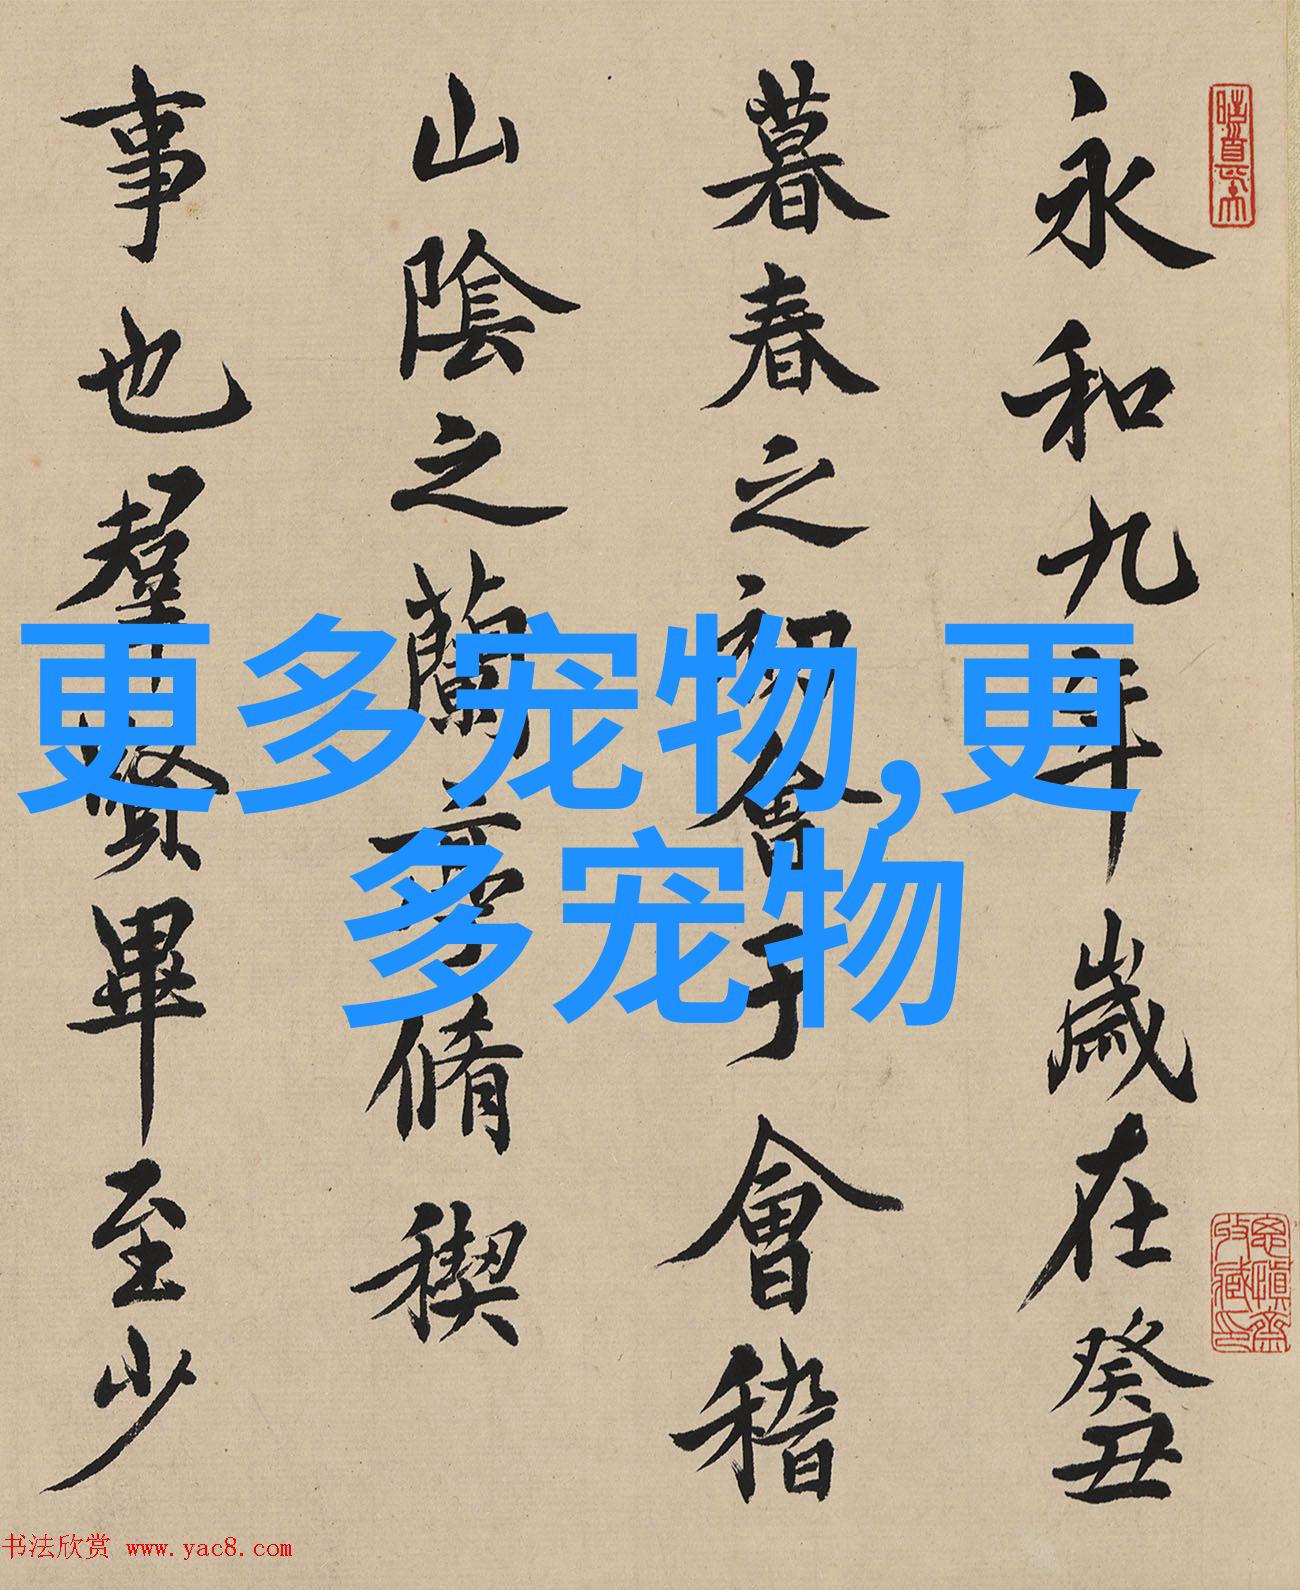 永和九年歲在癸丑
暮春之初會于會稽
山陰之蘭亭脩稧
事也羣賢畢至少
更多宠物,更
多宠物
书法欣赏 www.yac8.com